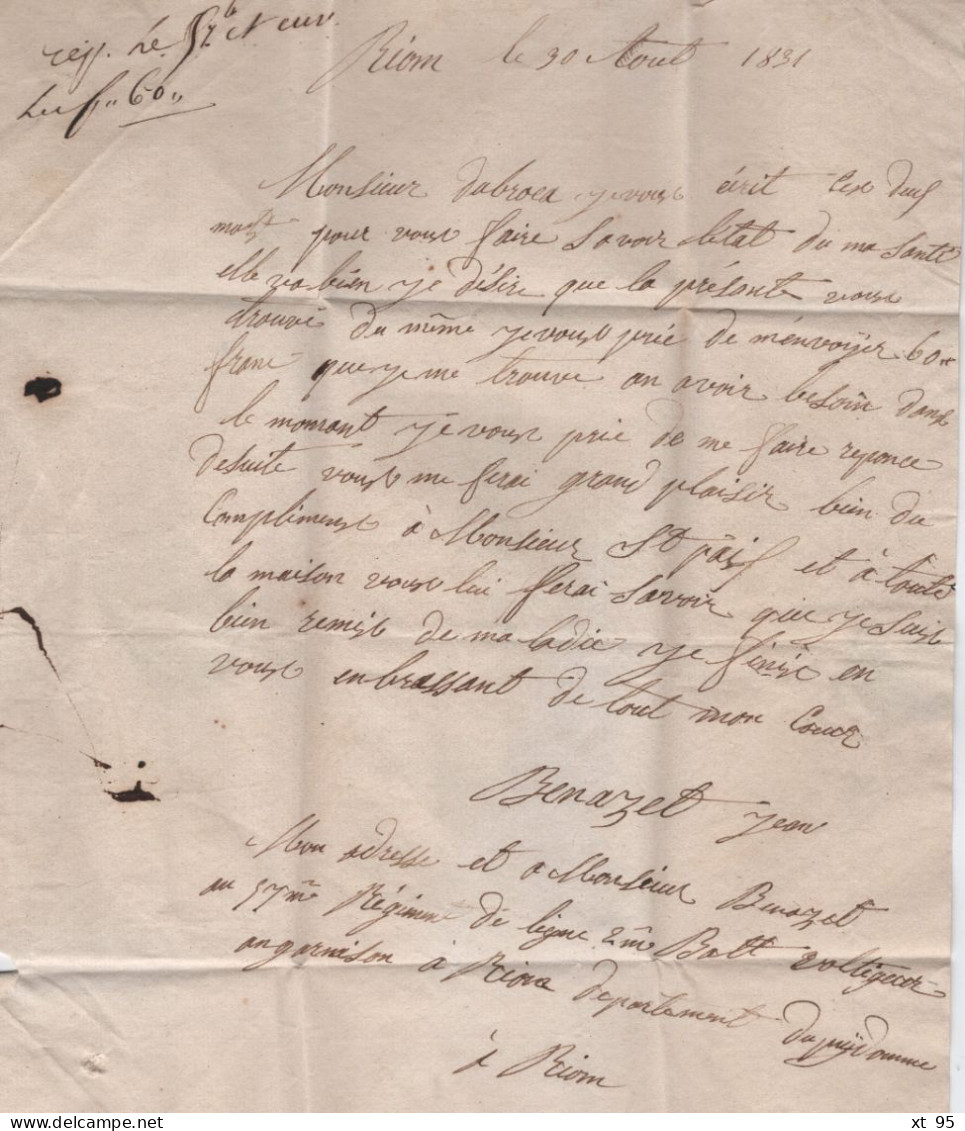 rep. Le 5 7b
Riom le 30 Aout 1831
Monsieur dabroca je vous écrit Ces deus
most pour vous faire Savoir letat du ma Santé
elle va bien je désire que la présante vous
trouve du même je vous prié de m'envoyer 60
franc que je me trouve an avoir besoin dans
le momant je vous prie de me faire reponce
desuite vous me ferai grand plaisir bien du
Compliment à Monsieur St pais et à toute
la maison vous lui ferai Savoir que je suis
bien remis de ma ladie je finis en
vous enbrassant de tout mon Coeur
Benazet jean
Mon adresse et a Monsieur Benazet
au 57me Régimen de ligne 2me Batt voltigeur
angarnison à Riom departement dupuÿdomme
à Riom
xt 95